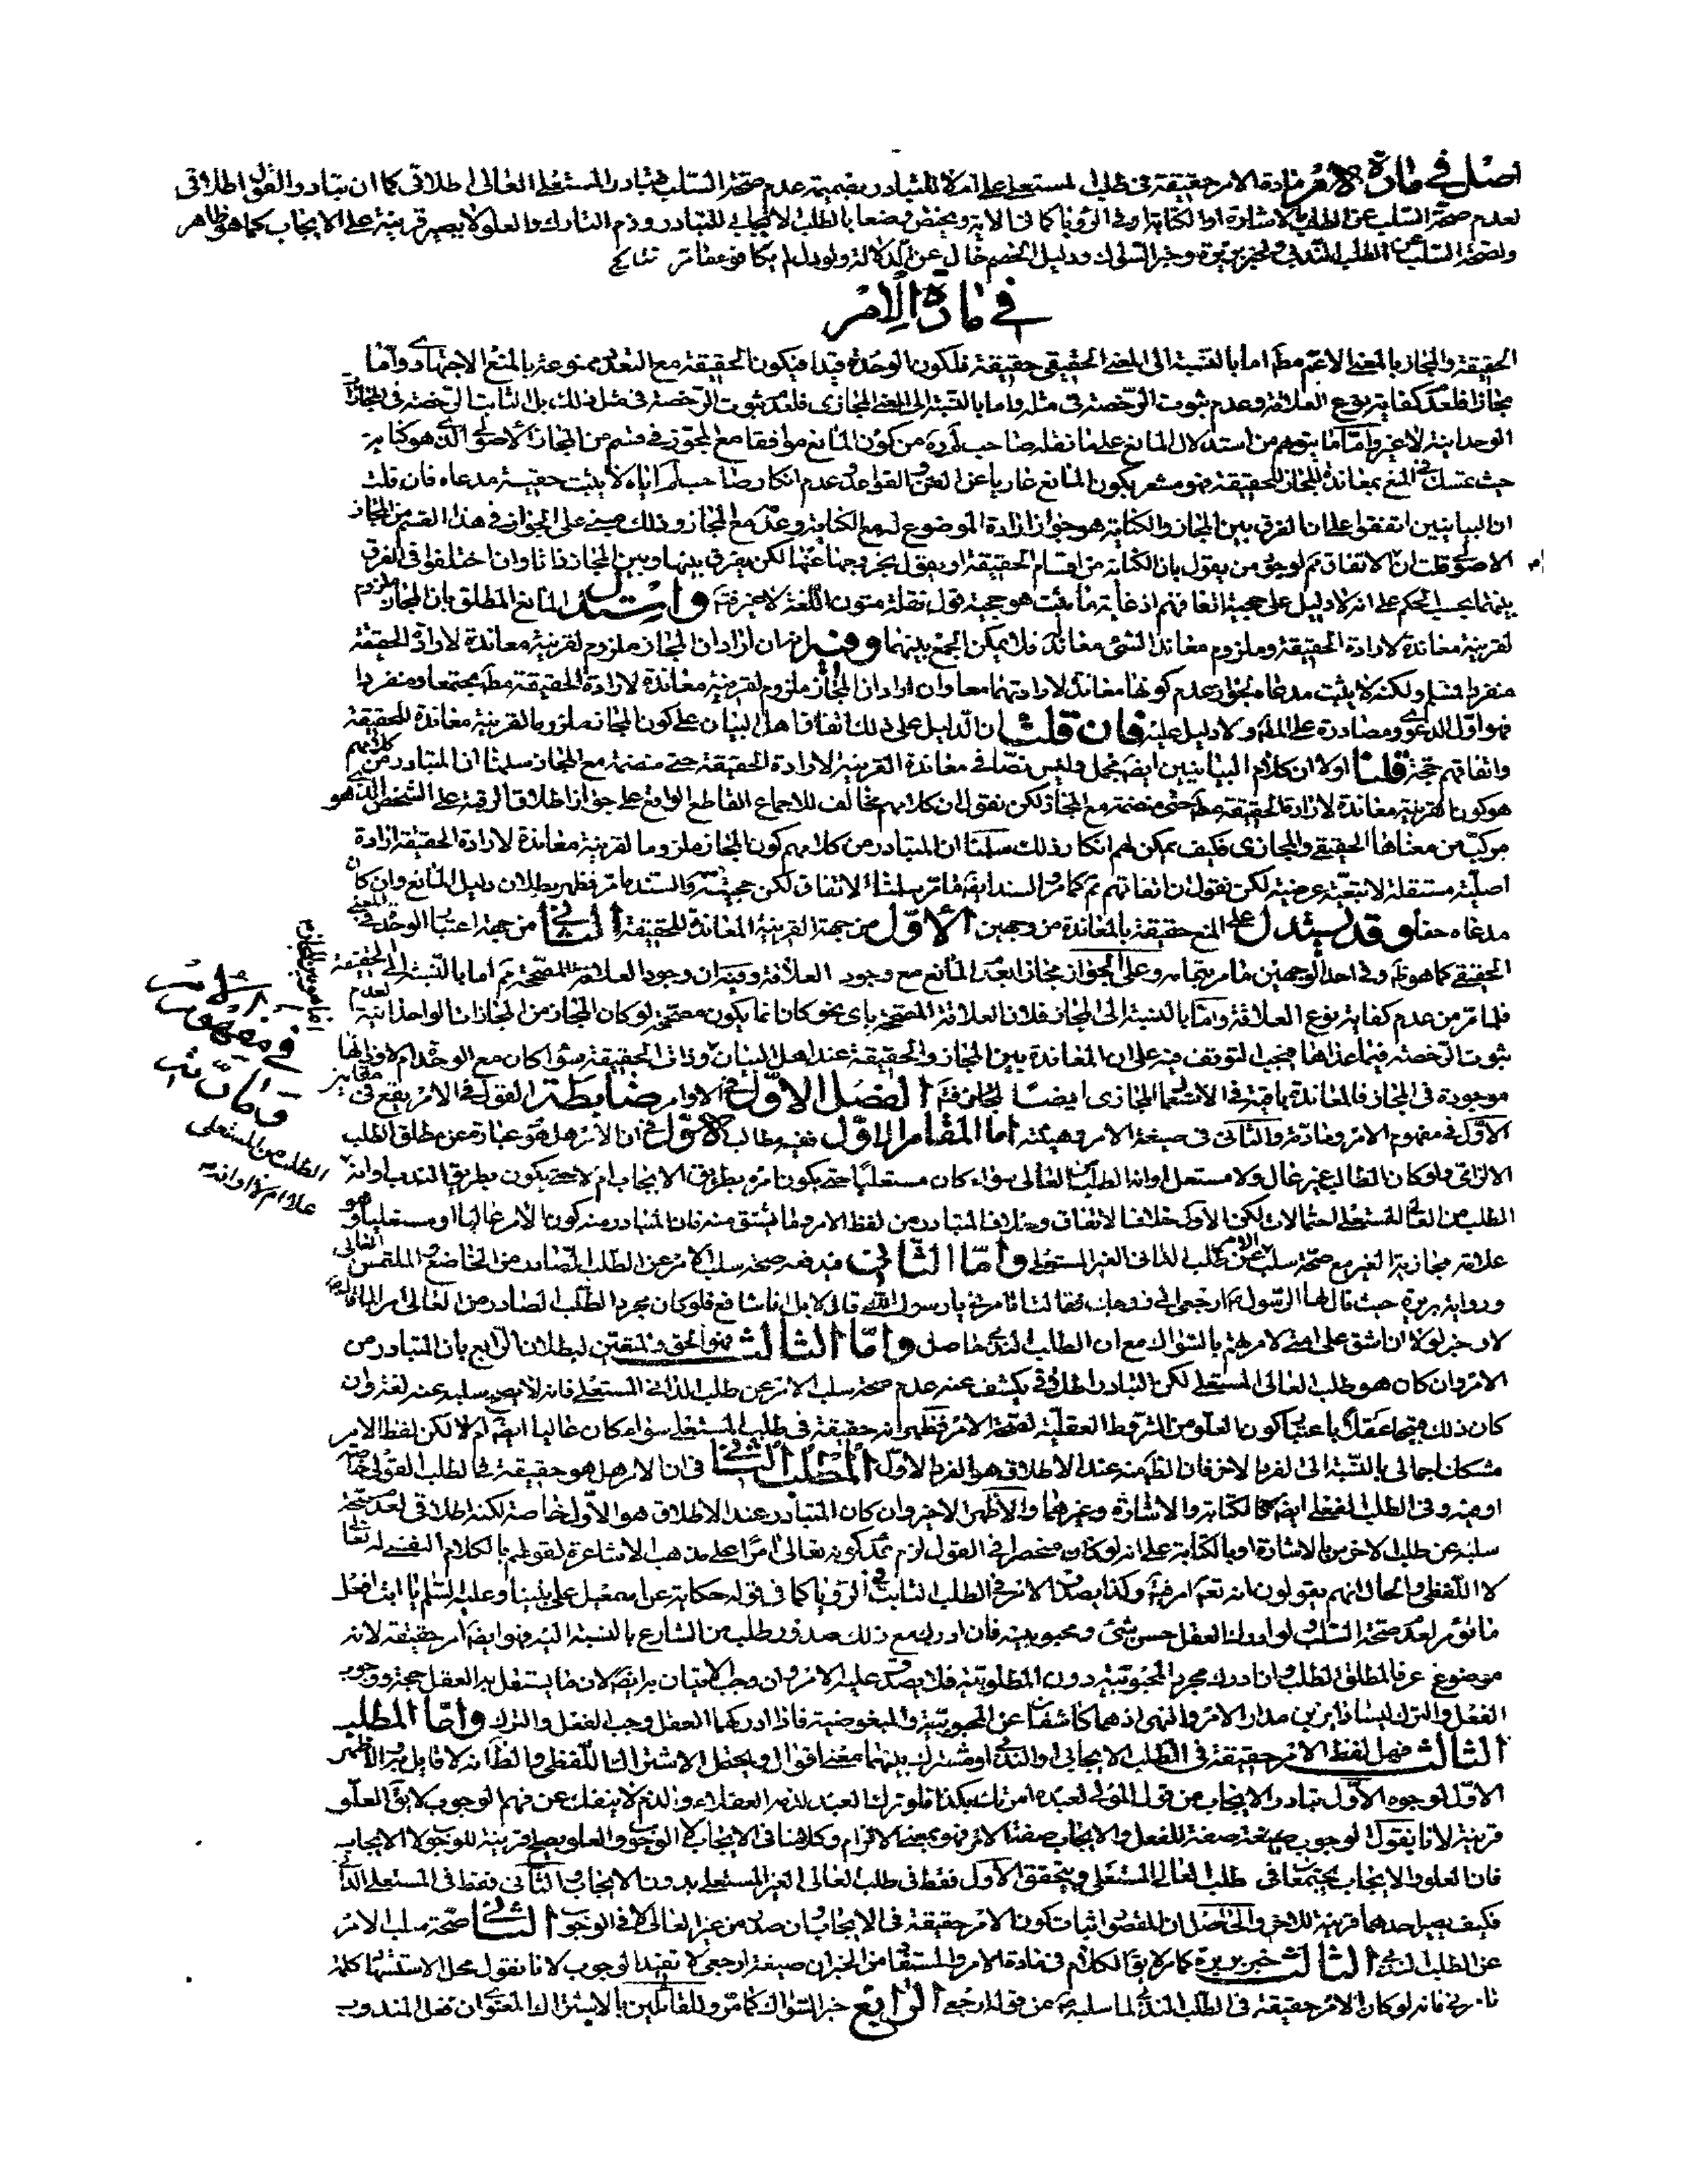 اصل في مادة الامر مادة الامر حقيقة في طلب المستعلي على
لعدم صحة السلب عن الطلب بالاشارة او الكتابة وفي الرؤيا كما في الاية ويختص وضعا بالطلب الايجابي للتبادر وذم التارك والعلو لا يصير قرينة على الايجاب كما هو ظاهر
ولصحة السلب عن الطلب الندبي لخبر بريرة وخبر السواك ودليل الخصم خال عن الدلالة ولو دل لم يكافؤ ما مر نتايج
في مادة الامر
الحقيقة والمجاز بالمعنى الاعم مط اما بالنسبة الى المعنى الحقيقي حقيقة فلكون الوحدة قيدا فيكون الحقيقة مع التعدد ممنوعة بالمنع الاجتهادي واما
مجازا فلعدم كفاية نوع العلاقة وعدم ثبوت الرخصة في مثله واما بالنسبة الى المعنى المجازي فلعدم ثبوت الرخصة في مثل ذلك بل الثابت الرخصة في المجاز
الوحدانية لا غير واما ما يتوهم من استدلال المانع على ما نقله صاحب لم ره من كون المانع موافقا مع المجوز في قسم من المجاز الاصولي الذي هو كناية
حيث تمسك في المنع بمعاندة المجاز للحقيقة فهو مشعر بكون المانع عاريا عن الفن والقواعد وعدم انكار صاحب لم اياه لا يثبت حقيقة مدعاه فان قلت
ان البيانيين اتفقوا على ان الفرق بين المجاز والكناية هو جواز ارادة الموضوع له مع الكناية وعدمه مع المجاز وذلك مبني على الجواز في هذا القسم من المجاز
الاصولي قلت ان الاتفاق ثم لوجود من يقول بان الكناية من اقسام الحقيقة او يقول بخروجها عنهما لكن يفرق بينها وبين المجاز ذاتا وان اختلفوا في الفرق
بينهما بحسب الحكم على انه لا دليل على حجية اتفاقهم اذ غاية ما يثبت هو حجية قول نقلة متون اللغة لا غير فتم واستدل المانع المطلق بان المجاز ملزوم
لقرينة معاندة لارادة الحقيقة وملزوم معاند الشئ معاند له فلا يمكن الجمع بينهما وفيه انه ان اراد ان المجاز ملزوم لقرينة معاندة لارادة الحقيقة
منفردا فمسلم ولكنه لا يثبت مدعاه لجواز عدم كونها معاندة لارادتهما معا وان اراد ان المجاز ملزوم لقرينة معاندة لارادة الحقيقة مط مجتمعا ومنفردا
فهو اول الدعوى ومصادرة على المط ولا دليل عليه فان قلت ان الدليل على ذلك اتفاق اهل البيان على كون المجاز ملزوما لقرينة معاندة للحقيقة
واتفاقهم حجة قلنا اولا ان كلام البيانيين ايضا مجمل وليس نصا في معاندة القرينة لارادة الحقيقة حتى منضمة مع المجاز سلمنا ان المتبادر من كلامهم
هو كون القرينة معاندة لارادة الحقيقة مط حتى منضمة مع المجاز لكن نقول ان كلامهم مخالف للاجماع القاطع الواقع على جواز اطلاق الرقبة على الشخص الذي هو
مركب من معناها الحقيقي والمجازي فكيف يمكن لهم انكار ذلك سلمنا ان المتبادر من كلامهم كون المجاز ملزوما لقرينة معاندة لارادة الحقيقة ارادة
اصلية مستقلة لا تبعية عرضية لكن نقول ان اتفاقهم ثم كما مر السند ايضا ما مر سلمنا الاتفاق لكن حجيته والسند ما مر فظهر بطلان دليل المانع وان كان
مدعاه حقا وقد يستدل على المنع حقيقة بالمعاندة من وجهين الاول من جهة القرينة المعاندة للحقيقة الثاني من جهة اعتبار الوحدة في المعنى
الحقيقي كما هو ظ وفي احد الوجهين ما مر وعلى الجواز مجازا بعدم المانع مع وجود العلاقة وفيه ان وجود العلاقة المصححة ثم اما بالنسبة الى الحقيقة
فلما مر من عدم كفاية نوع العلاقة واما بالنسبة الى المجاز فلان العلاقة المصححة باي نحو كان انما يكون مصححة لو كان المجاز من المجازات الواحدانية لعدم
ثبوت الرخصة فيما عداها فيجب التوقف فيه على ان المعاندة بين المجاز والحقيقة عند اهل البيان وذات الحقيقة سواء كان مع الوحدة ام لا
موجودة في المجاز فالمعاندة باقية في الاستعمال المجازي ايضا فتم الفصل الاول في الاوامر ضابطة القول في الامر يقع في مقامين
الاول في مفهوم الامر ومادته والثاني في صيغة الامر وهيئته اما المقام الاول ففيه مطالب الاول في ان الامر هل هو عبارة عن مطلق الطلب
الالزامي ولو كان الطالب غير عال ولا مستعل او انه الطلب العالي سواء كان مستعليا حتى يكون امره بطريق الايجاب ام لا حتى يكون بطريق الندب او انه
الطلب من العالي المستعلي احتمالات لكن الاول خلاف الاتفاق وخلاف المتبادر من لفظ الامر وما يشتق منه فان المتبادر منه كون الامر عاليا او مستعليا وهو
علامة مجازية الغير مع صحة سلب الامر عن طلب الداني الغير المستعلي واما الثاني فيدفعه صحة سلب الامر عن الطلب الصادر من الخاضع الملتمس العالي
ورواية بريرة حيث قال لها الرسول ص ارجعي الى زوجك فقالت اتامرني يا رسول الله قال لا بل انا شافع فلو كان مجرد الطلب الصادر من العالي امرا
لا وخبر لولا ان اشق على امتي لامرتهم بالسواك مع ان الطلب الندبي حاصل واما الثالث فهو الحق والمتعين لبطلان الرابع بان المتبادر من
الامر وان كان هو طلب العالي المستعلي لكن التبادر اطلاقي يكشف عنه عدم صحة سلب الامر عن طلب الداني المستعلي فانه لا يصح سلبه عنه لغة وان
كان ذلك قبيحا عقلا باعتبار كون العلو من الشروط العقلية لصحة الامر فظهر انه حقيقة في طلب المستعلي سواء كان عاليا ايضا ام لا لكن لفظ الامر
مشكك اجمالي بالنسبة الى الفرد الاخر فان الظ منه عند الاطلاق هو الفرد الاول المطلب الثاني في ان الامر هل هو حقيقة في الطلب القولي خاصة
او فيه وفي الطلب الفعلي ايضا كالكتابة والاشارة وغيرهما والاظهر الاخير وان كان المتبادر عند الاطلاق هو الاول خاصة لكنه اطلاقي لعدم صحة
سلبه عن طلب الاخرس بالاشارة او بالكتابة على انه لو كان منحصرا في القول لزم عدم كونه تعالى امرا على مذهب الاشاعرة لقولهم بالكلام النفسي له تعالى
لا اللفظي والحال انهم يقولون انه تعالى امر فتم وكذا يصدق الامر في الطلب الثابت في الرؤيا كما في قوله حكاية عن اسمعيل على نبينا وعليه السلم يا ابت افعل
ما تؤمر لعدم صحة السلب ولو ادرك العقل حسن شئ ومحبوبيته فان ادرك مع ذلك صدور طلب من الشارع بالنسبة اليه فهو ايضا امر حقيقة لانه
موضوع عرفا لمطلق الطلب وان ادرك مجرد المحبوبية دون المطلوبية فلا يصدق عليه الامر وان وجب الاتيان به ايضا لان ما يستقل به العقل حجة ووجوب
الفعل والترك ليسا دايرين مدار الامر والنهي اذ هما كاشفان عن المحبوبية والمبغوضية فاذا ادركهما العقل وجب الفعل والترك واما المطلب
الثالث فهل لفظ الامر حقيقة في الطلب الايجابي او الندبي او مشترك بينهما معنى اقوال ويحتمل الاشتراك اللفظي والظ انه لا قايل به والاظهر
الاول لوجوه الاول تبادر الايجاب من قول المولى لعبده امرتك بكذا فلو ترك العبد لذمه العقلاء والذم لا ينفك عن فهم الوجوب لا يقال العلو
قرينة لانا نقول الوجوب صفة للفعل والايجاب صفة الامر فهو بمعنى الالزام وكلامنا في الايجاب لا الوجوب والعلو يصلح قرينة للوجوب لا الايجاب
فان العلو والايجاب يجتمعان في طلب العالي المستعلي ويتحقق الاول فقط في طلب العالي الغير المستعلي بدون الايجاب والثاني فقط في المستعلي الداني
فكيف يصير احدهما قرينة للاخر والحاصل ان المقصود اثبات كون الامر حقيقة في الايجاب وان صدر من غير العالي لا في الوجوب الثاني صحة سلب الامر
عن الطلب الندبي الثالث خبر بريرة كما مر لا يقال الكلام في مادة الامر والمستفاد من الخبر ان صيغة ارجعي لا تفيد الوجوب لانا نقول محل الاستشهاد كلمة
تامرني فانه لو كان الامر حقيقة في الطلب الندبي لما سلبه ص عن قوله ارجعي الرابع خبر السواك كما مر وللقائلين بالاشتراك المعنوي ان فعل المندوب
في مفهوم
ومادته
الطلب من المستعلي